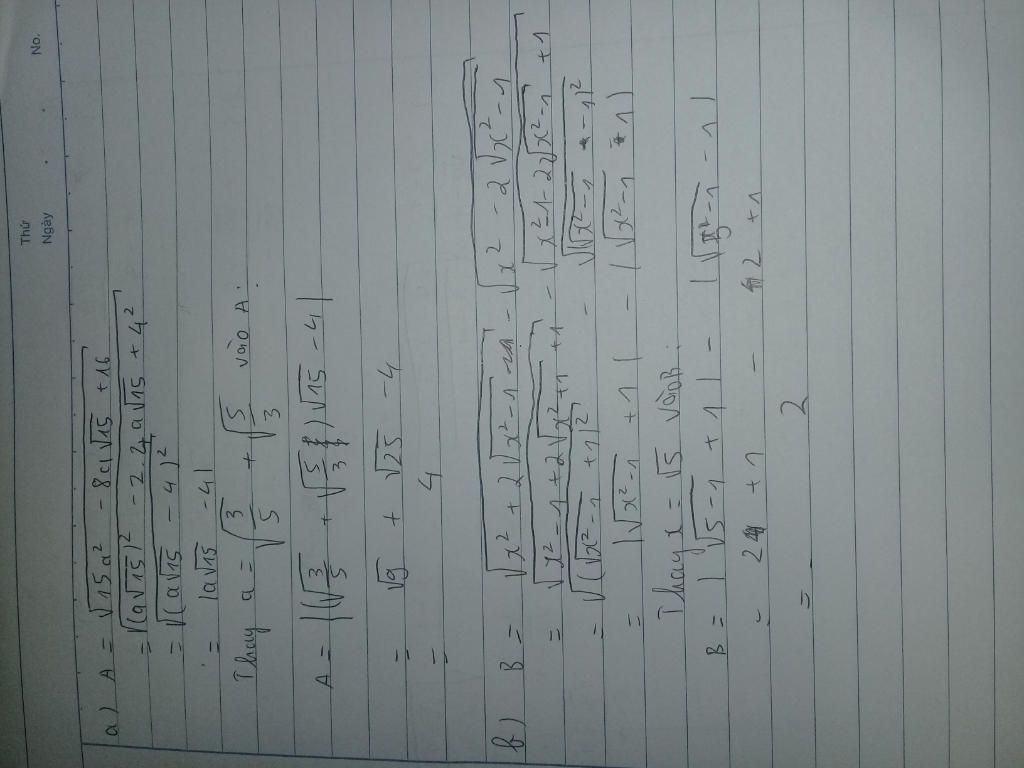 Thứ
Ngày . . No.
a) A = √(15a² - 8a√15 + 16)
= √((a√15)² - 2.4a√15 + 4²)
= √((a√15 - 4)²)
= |a√15 - 4|
Thay a = √(3/5) + √(5/3) vào A:
A = |(√(3/5) + √(5/3))√15 - 4|
= √9 + √25 - 4
= 4
b) B = √(x² + 2√(x² - 1)) - √(x² - 2√(x² - 1))
= √(x² - 1 + 2√(x² - 1) + 1) - √(x² - 1 - 2√(x² - 1) + 1)
= √((√(x² - 1) + 1)²) - √((√(x² - 1) - 1)²)
= |√(x² - 1) + 1| - |√(x² - 1) - 1|
Thay x = √5 vào B:
B = |√(5 - 1) + 1| - |√(5 - 1) - 1|
= 2 + 1 - 2 + 1
= 2